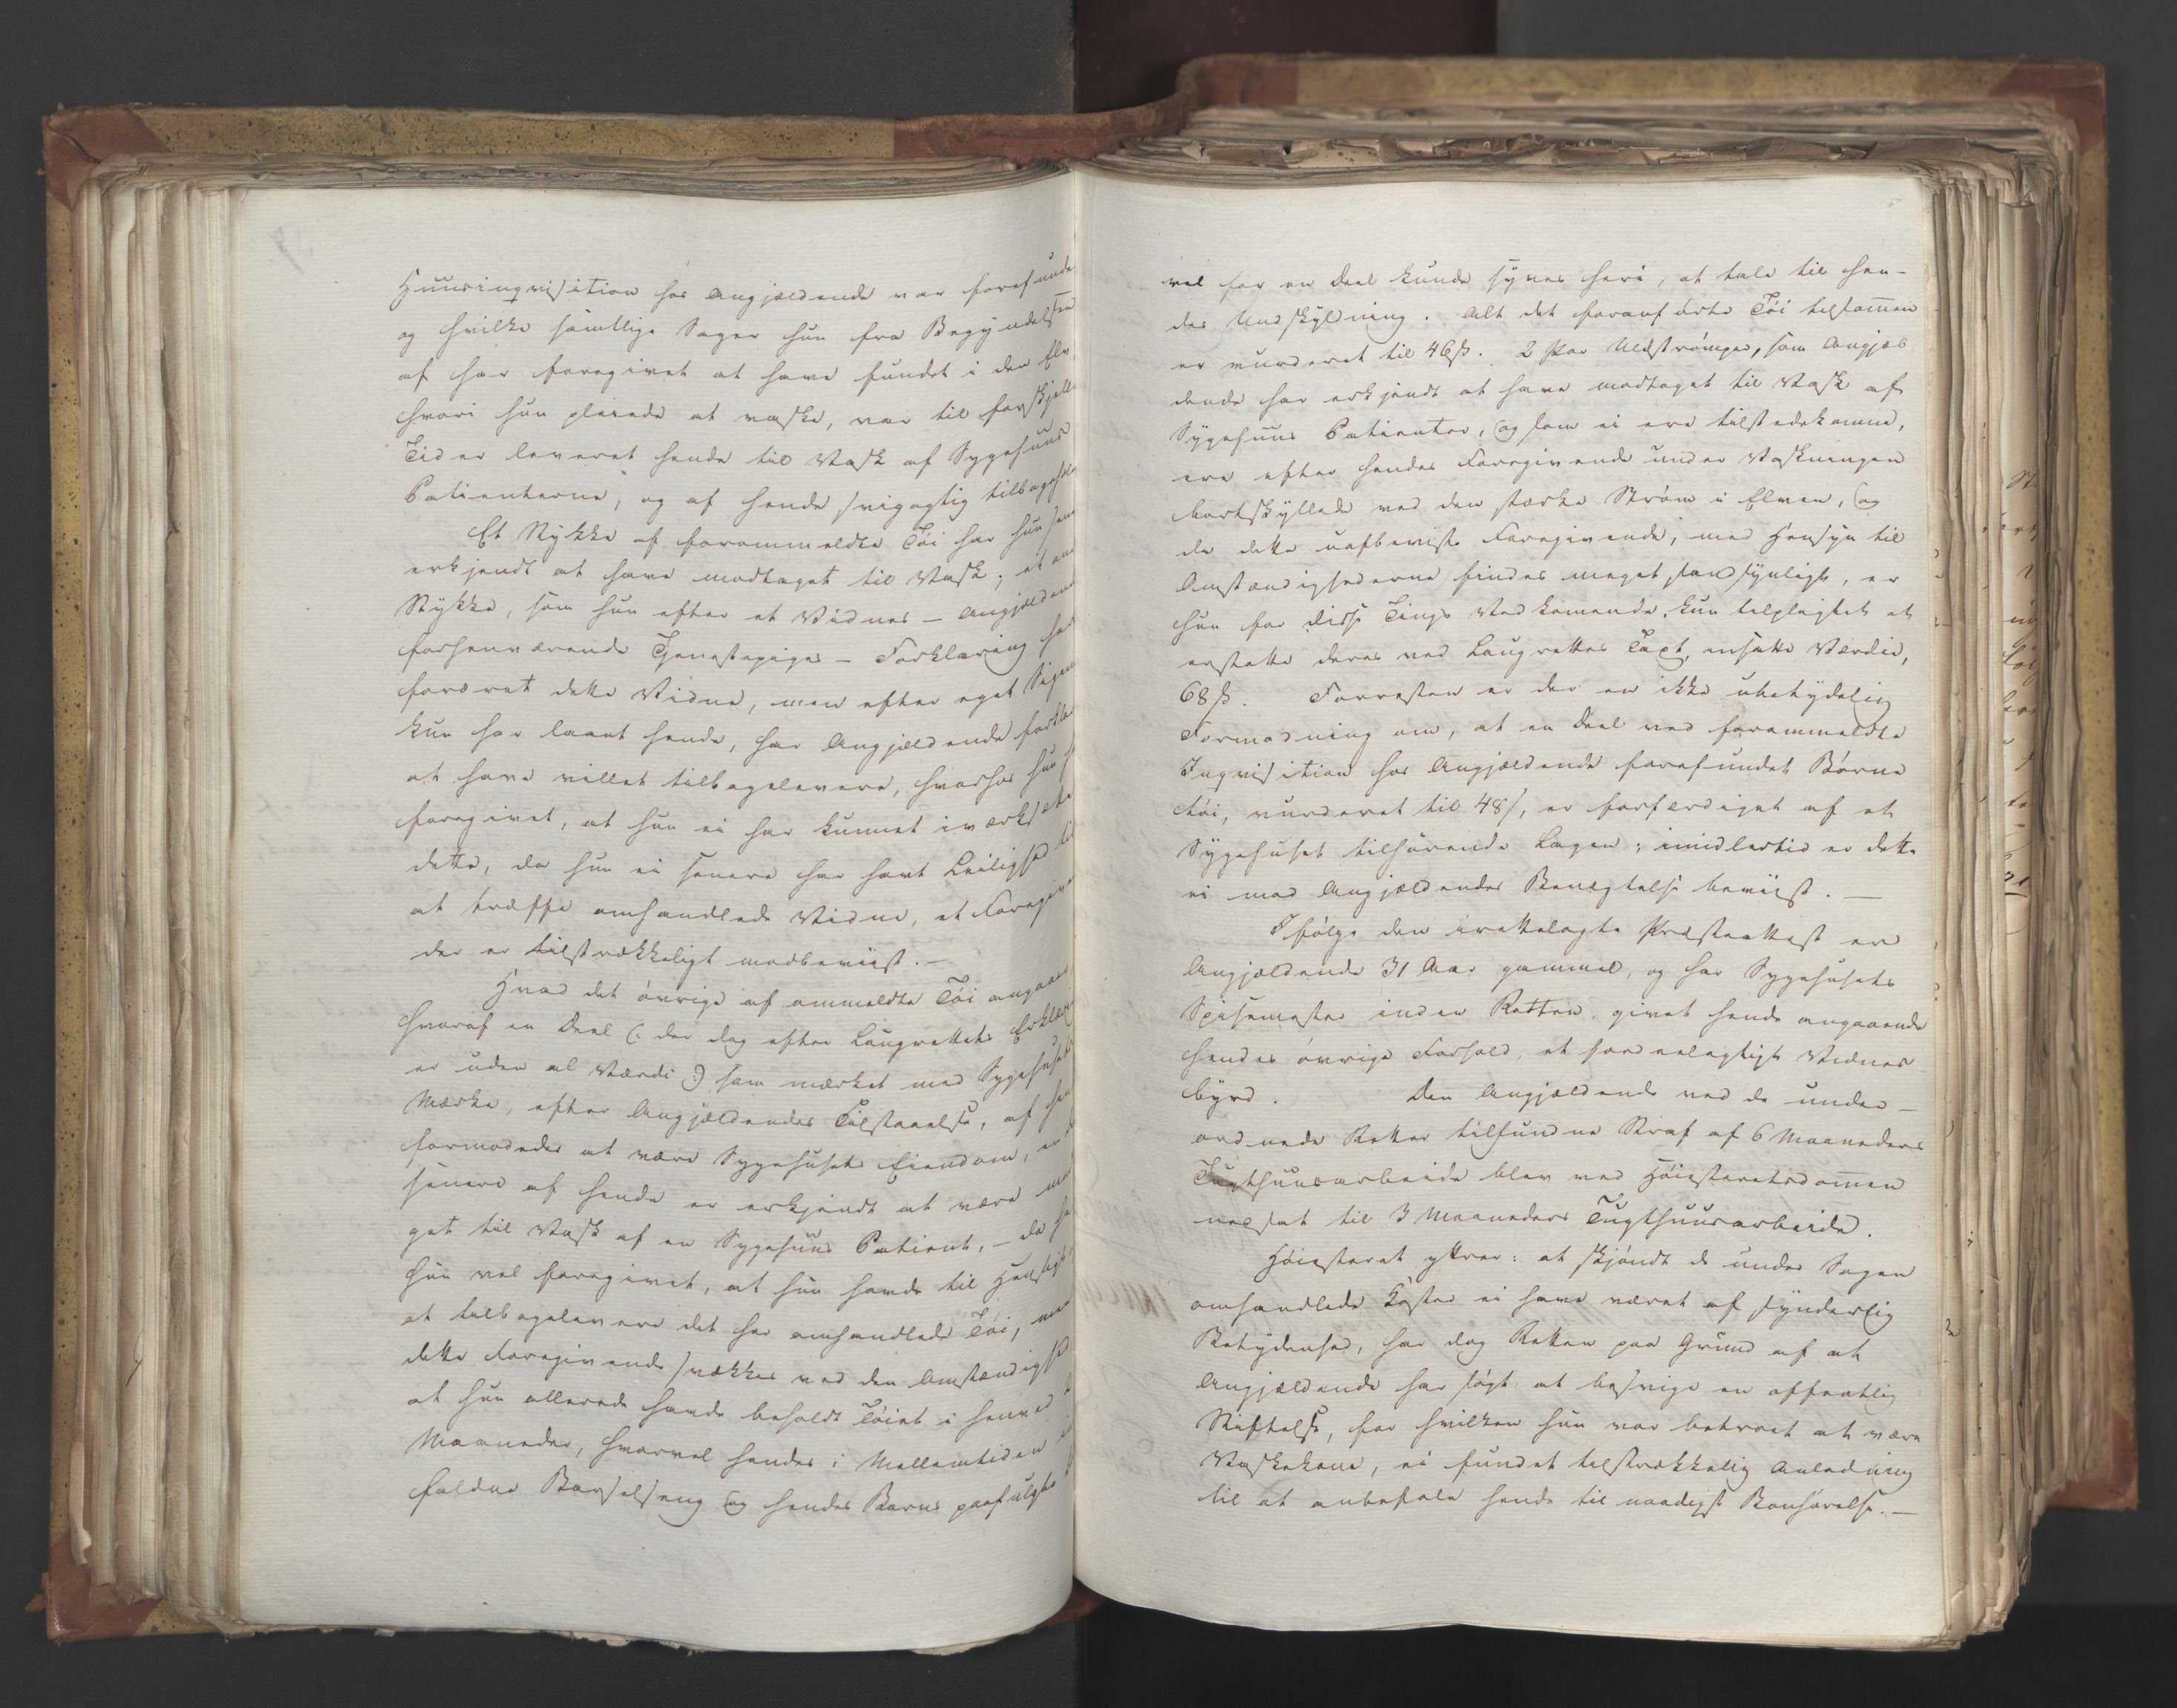 Huusinqvisition hos Angjældende var forefunde
og hvilke samtlige Sager hun fra Begyndelsen
af har foregivet at have fundet i den Elv
hvori hun pleiede at vaske, var til forskjell
Tider leveret hende til Vask af Sygehuus
Patienterne, og af hende svigagtig tilbageholdt
Et Stykke af forommeldte Töi har hun sen
erkjendt at have modtaget til Vask; et an
Stykke, som hun efter et Vidnes – Angjælden
forhenværende Tjenestepiges – Forklaring har
foræret dette Vidne, men efter eget Sigen
kun har laant hende, har Angjældende forkla
at have villet tilbagelevere, hvorhos hun h
foregivet, at hun ei har kunnet iværksætte
dette, da hun ei senere har havt Leilighed til
at træffe omhandlede Vidne, et Foregive
der er tilstrækkeligt modbeviist. –
Hvad det övrige af ommeldte Töi angaaer
hvoraf en Deel (: der dog efter Laugrettets Erklær
er uden al Værdi :) som mærket med Sygehusets
Mærke, efter Angjældendes Tilstaaelse, af hen
formodedes at være Sygehusets Eiendom, en
senere af hende er erkjendt at være mo
get til Vask af en Sygehuus Patient, – da ha
hun vel foregivet, at hun havde til Hensigt
at tilbagelevere det her omhandlede Töi, men
dette Foregivende svækkes ved den Omstændighed
at hun allerede havde beholdt Töiet i henved
Maaneder, hvorvel hendes i Mellemtiden
faldne Barselseng og hendes Barns paafulgte
vel for en Deel kunde synes heri, at tale til hen-
des Undskyldning. Alt det foranførte Töi tilsammen
er vurderet til 46ß. 2 Par Uldströmper, som Angjæl
dende har erkjendt at have modtaget til Vask af
Sygehuus Patienter, og som ei ere tilstedekomne,
ere efter hendes Foregivende under Vaskningen
bortskyllede ved den stærke Ström i Elven, og
da dette uafbeviste Foregivende, med Hensyn til
Omstændighederne findes meget sandsynligt, er
hun for disse Tings Vedkommende kun tilpligtet at
erstatte deres ved Laugrettes Taxt ansatte Værdie,
68ß. Forresten er der en ikke ubetydelig
Formodning om, at en Deel ved forommeldte
Inqvisition hos Angjældende forefundet Börne
töi, vurderet til 48ß, er forfærdiget af et
Sygehuset tilhörende Lagen; imidlertid er dette
ei mod Angjældendes Benægtelse beviist. –
I fölge den irettelagte Præsteattest er
Angjældende 31 Aar gammel, og har Sygehusets
Spisemester inden Retten, givet hende angaaende
hendes övrige Forhold, et fordeelagtigt Vidnes-
byrd. Den Angjældende ved de under-
ordnede Retter tilfundne Straf af 6 Maaneders
Tugthuusarbeide blev ved Höiesteretsdommen
nedsat til 3 Maaneders Tugthuusarbeide.
Höiesteret yttrer: at skjöndt de under Sagen
omhandlede Koster ei have været af synderlig
Betydenhed, har dog Retten paa Grund af at
Angjældende har sögt at besvige en offentlig
Stiftelse, for hvilken hun var betroet at være
Vaskekone, ei fundet tilstrækkelig Anledning
til at anbefale hende til naadigst Benhörelse. –